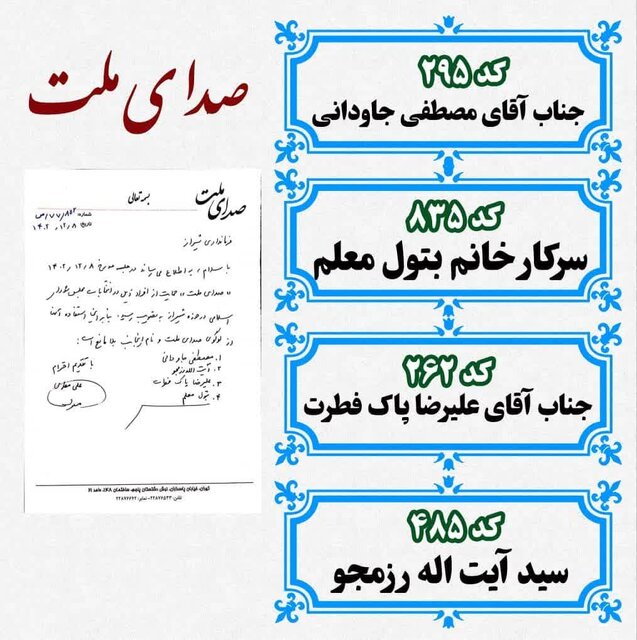 صدای ملت
کد ۲۹۵
جناب آقای مصطفی جاودانی
کد ۸۳۵
سرکار خانم بتول معلم
کد ۲۶۲
جناب آقای علیرضا پاک فطرت
کد ۴۸۵
سید آیت اله رزمجو
بسمه تعالی
صدای ملت
شماره: ۷۷/۸۵۲/ص
تاریخ: ۱۴۰۲/۱۲/۸
فرمانداری شیراز
با سلام، به اطلاع می‌رساند در جلسه مورخ ۱۴۰۲/۱۲/۸
«صدای ملت» حمایت از افراد ذیل در انتخابات مجلس شورای
اسلامی در حوزه شیراز به تصویب رسید. بنابراین استفاده
از لوگوی صدای ملت و نام اینجانب بلامانع است:
۱. مصطفی جاودانی
۲. آیت الله رزمجو
۳. علیرضا پاک فطرت
۴. بتول معلم
با تقدیم احترام
علی مطهری
تهران، خیابان پاسداران، نبش گلستان پنجم، ساختمان
تلفن: ۲۲۸۷۶۵۳۳ - نمابر: ۲۲۸۷۶۶۶۲